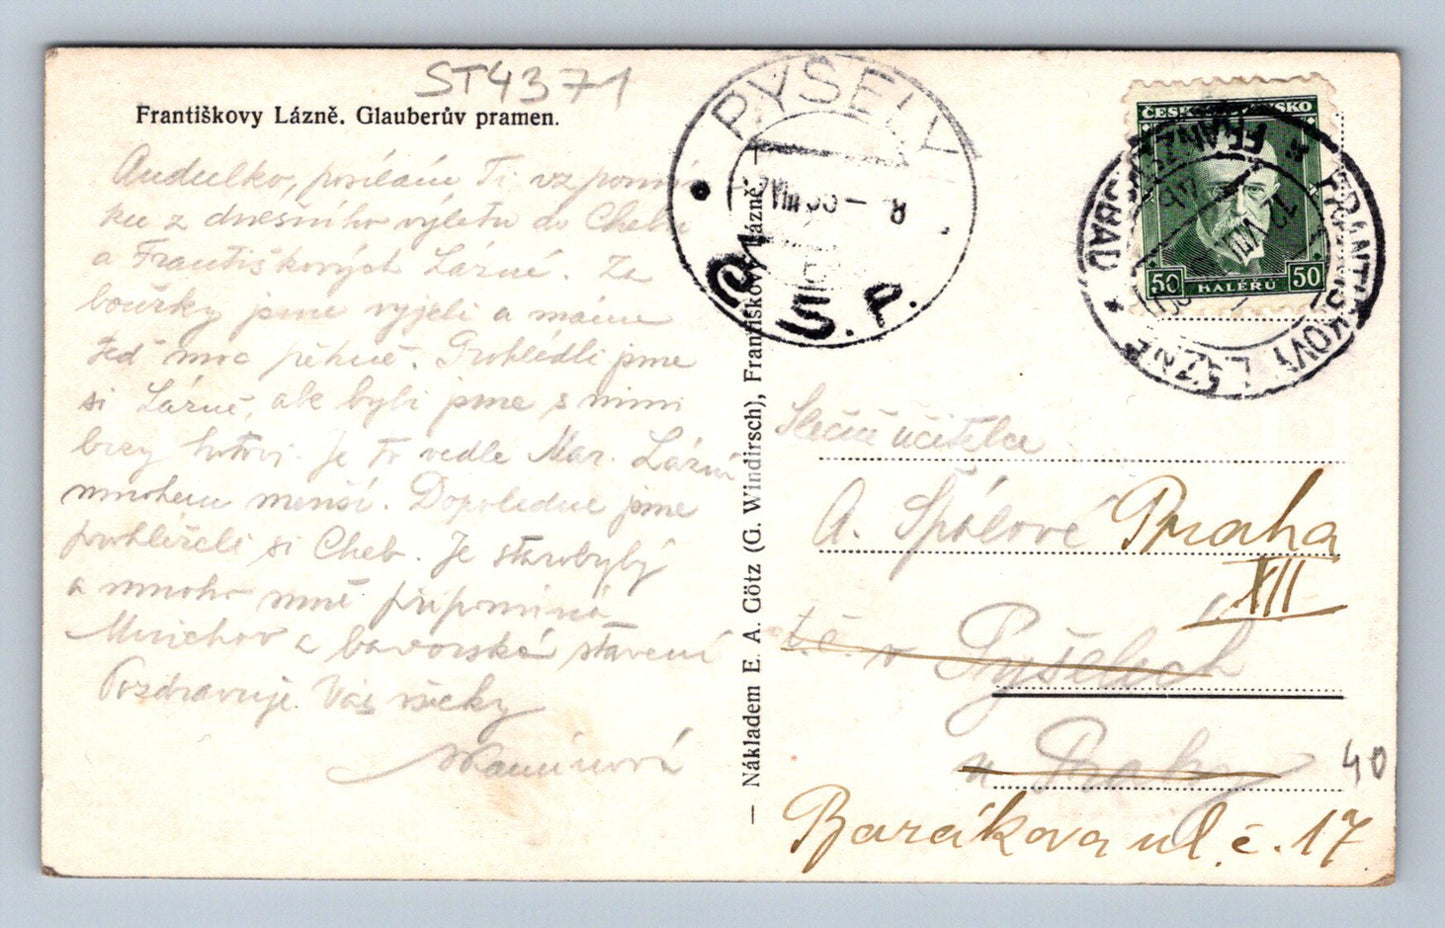 ST4371
Františkovy Lázně. Glauberův pramen.
Andulko, posílám Ti vzpomín
ku z dnešního výletu do Chebu
a Františkových Lázně. Za
bouřky jsme vyjeli a máme
teď moc pěkně. Prohlédli jsme
si Lázně, ale byli jsme s nimi
brzy hotovi. Je to vedle Mar. Lázní
mnohem menší. Dopoledne jsme
prohlíželi si Cheb. Je starobylý
a mnoho mně připomíná
Mnichov a bavorské stavení
Pozdravuje Vás všecky
— Nákladem E. A. Götz (G. Windirsch), Františkovy Lázně. —
PYSELY
VIII 33 - 8
S. P.
ČESKOSLOVENSKO
50 HALÉŘŮ 50
FRANTIŠKOVY LÁZNĚ
* FRANZENSBAD *
12. VIII
Slečně učitelce
A. Špálové Praha
XII
t. č. v Pyšelích
u Prahy
40
Barákova ul. č. 17